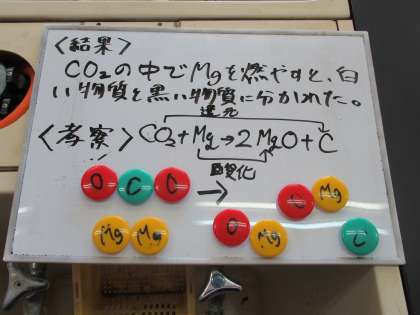 <結果>
CO₂の中でMgを燃やすと、白
い物質と黒い物質に分かれた。
還元
<考察> CO₂+Mg→2MgO+C
酸化
O C O → O Mg
Mg Mg O Mg C